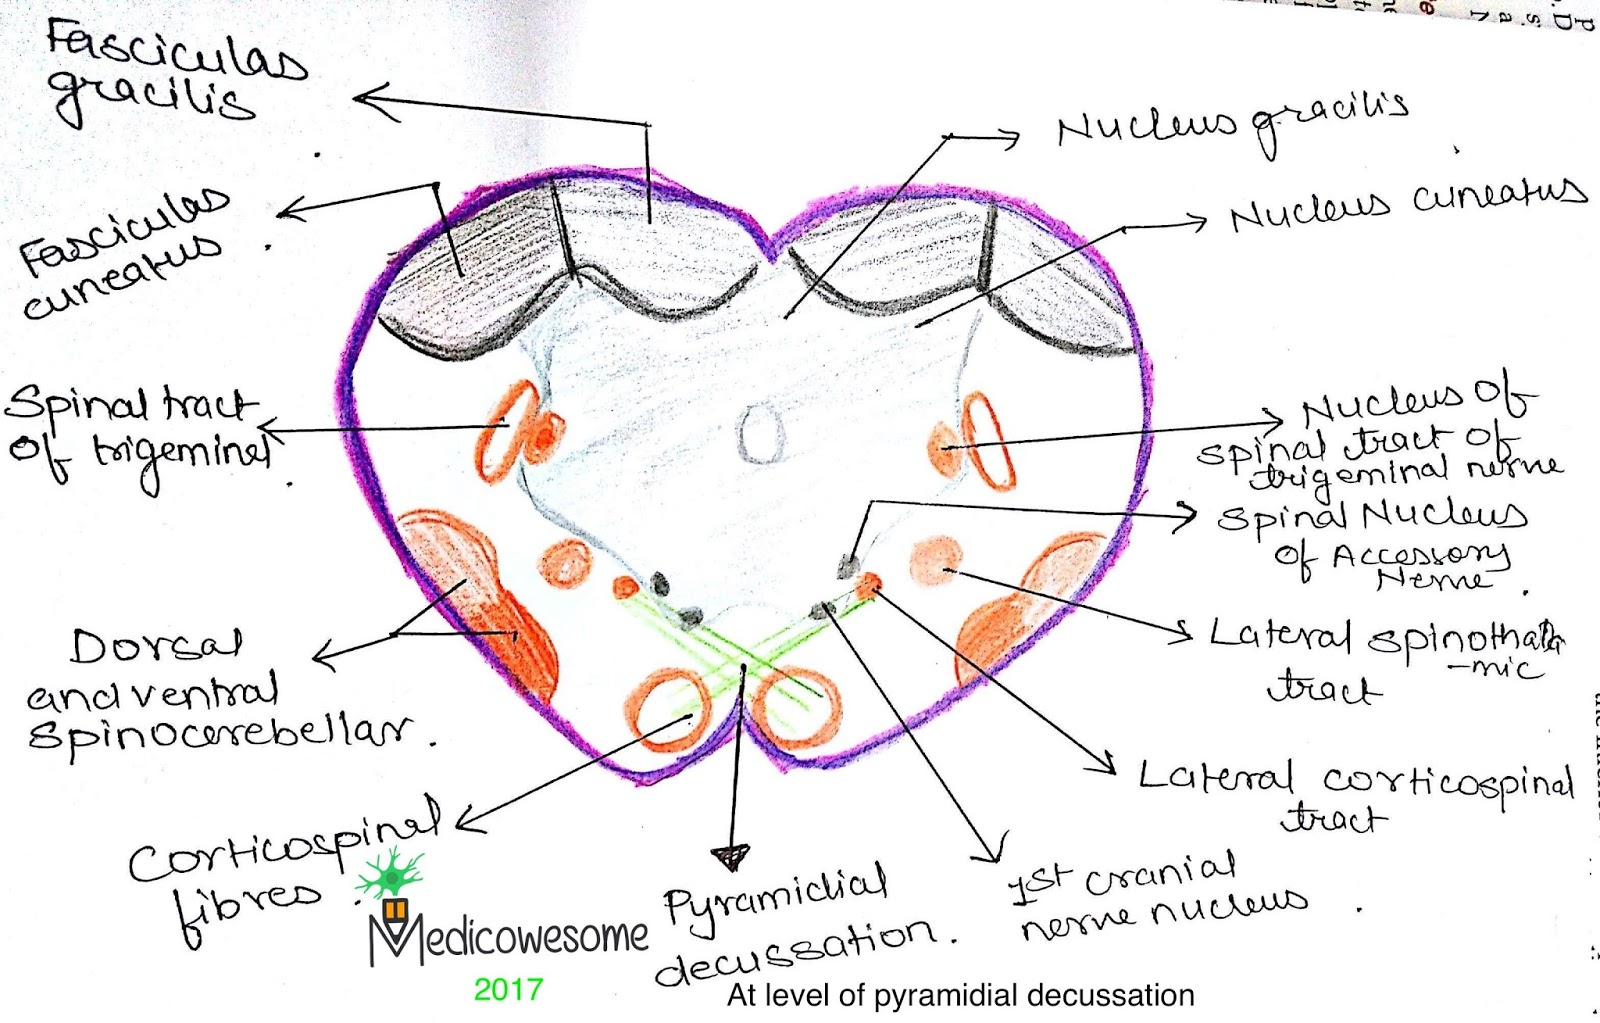 Fasciculas
gracilis
Fasciculas
cuneatus
Spinal tract
of trigeminal
Dorsal
and ventral
Spinocerebellar.
Corticospinal
fibres
Nucleus gracilis
Nucleus cuneatus
Nucleus of
spinal tract of
trigeminal nerve
Spinal Nucleus
of Accessory
Nerve
Lateral spinothala
-mic
tract
Lateral corticospinal
tract
1st cranial
nerve nucleus
Pyramidial
decussation.
Medicowesome
2017
At level of pyramidial decussation